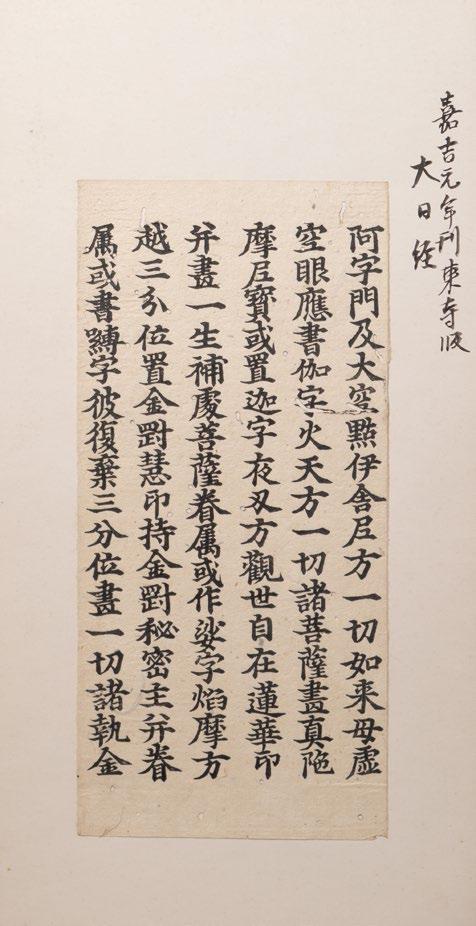 嘉吉元年刊東寺版
大日経
阿字門及大空點伊舎尼方一切如来母虚
空眼應書伽字火天方一切諸菩薩畫真陁
摩尼寳或置迦字夜叉方觀世自在蓮華印
并畫一生補處菩薩眷属或作娑字焰摩方
越三分位置金剛慧印持金剛秘密主并眷
属或書嚩字彼復棄三分位畫一切諸執金